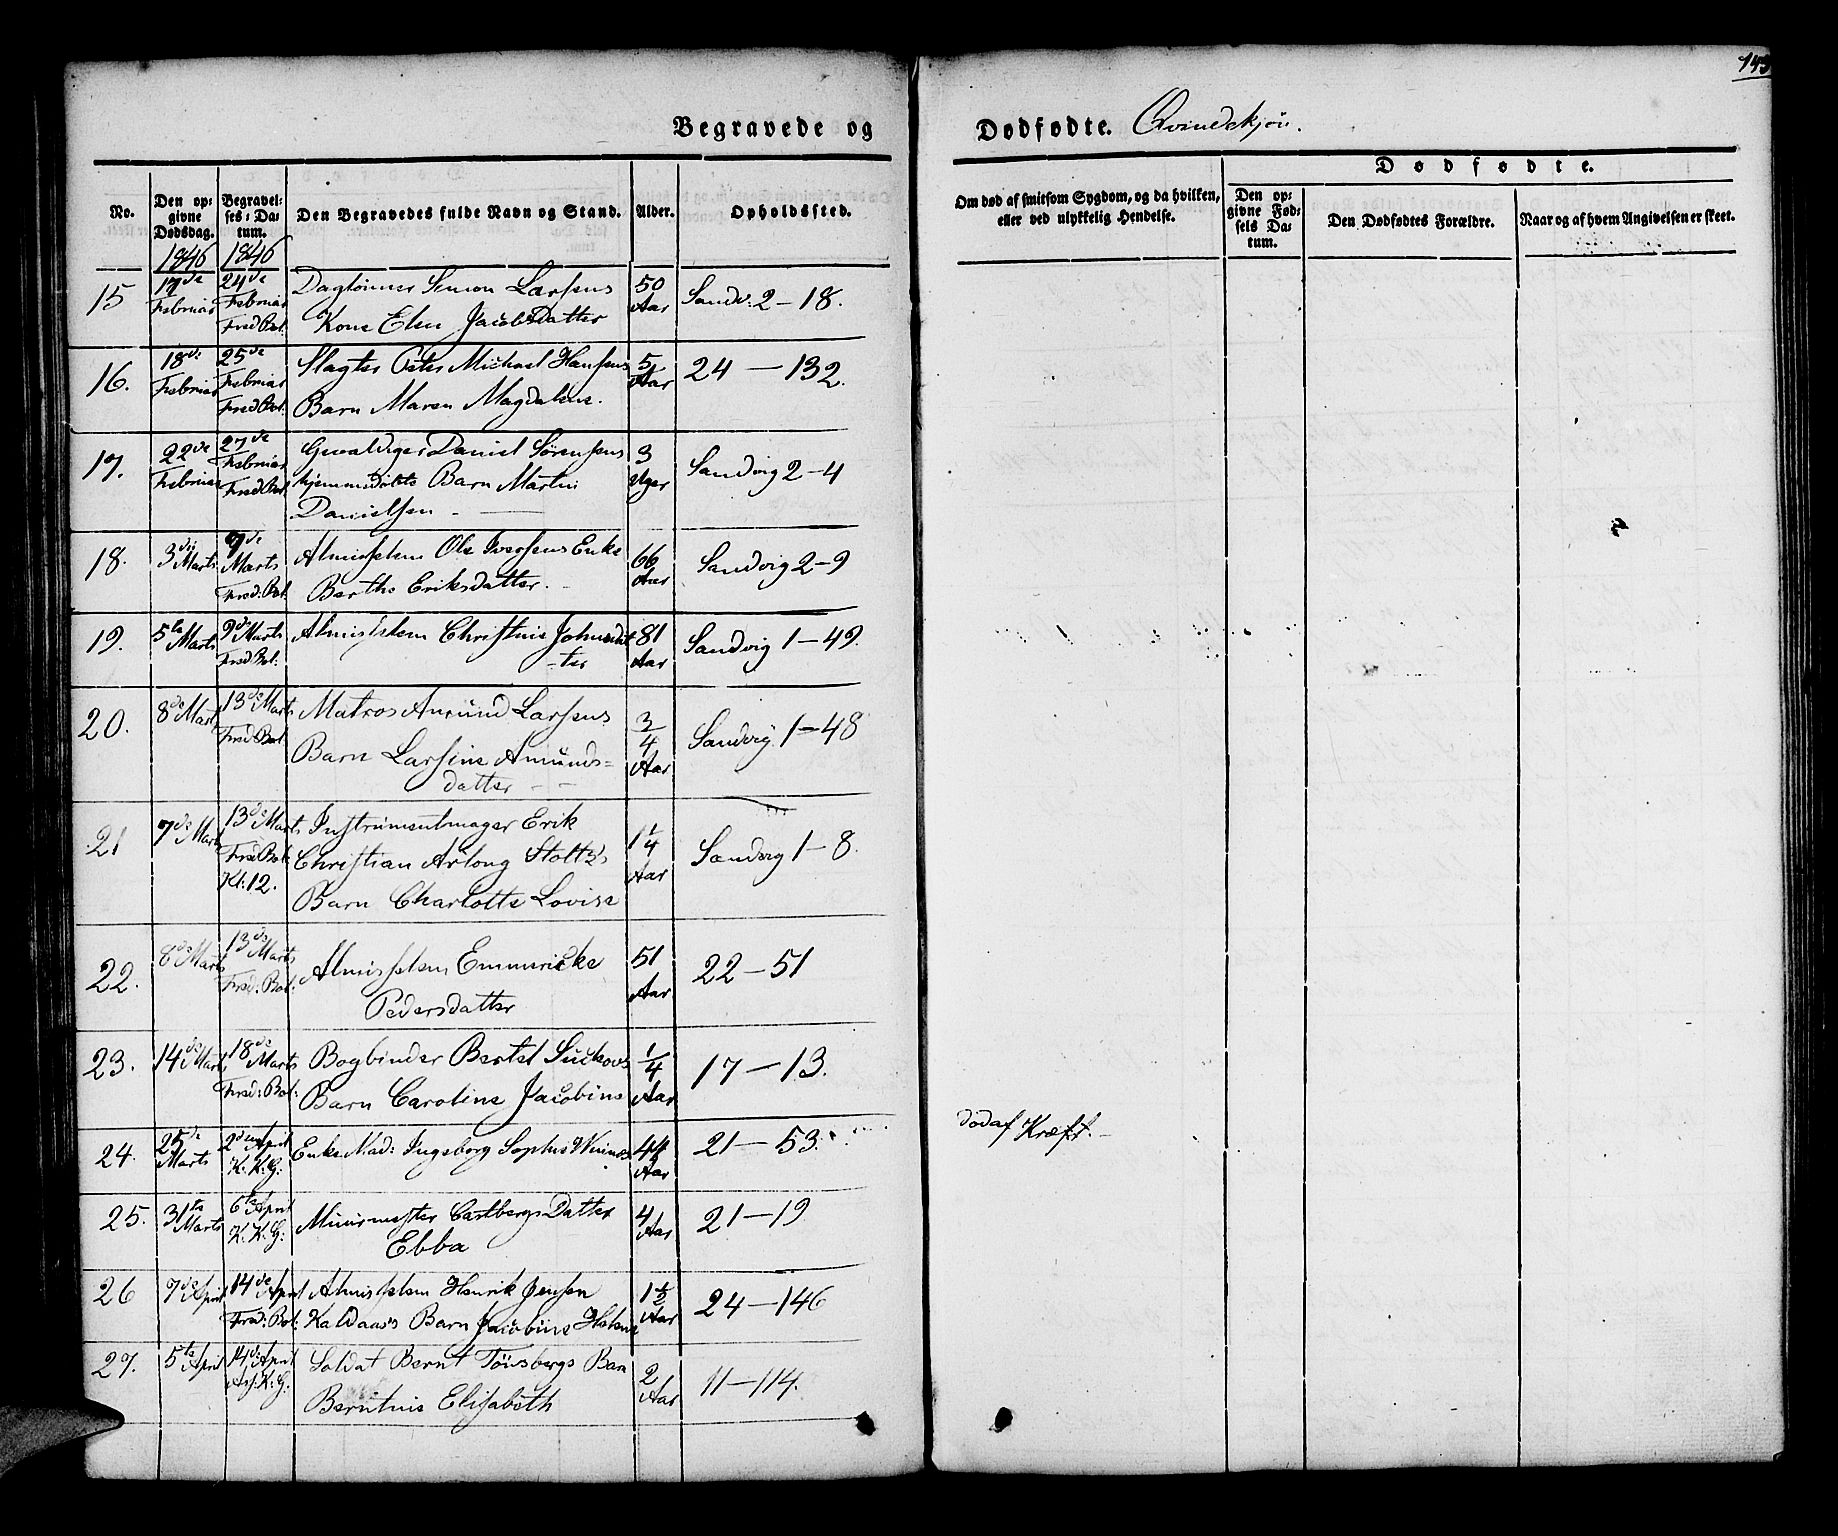 143
Begravede og Dødfødte. Qvindekjøn.
No.
Den opgivne Dødsdag.
Begravelses-Datum.
Den Begravedes fulde Navn og Stand.
Alder.
Opholdssted.
Om død af smitsom Sygdom, og da hvilken, eller ved ulykkelig Hendelse.
Dødfødte.
Den opgivne Fødsels Datum.
Den Dødfødtes Forældre.
Naar og af hvem Angivelsen er skeet.
1846 1846
15 17de Februar 24de Februar Fred: Bol: Dagløinner Simon Larsens 50 Aar Sandv: 2–18.
Kone Elen Jacobsdatter
16. 18de Februar 25de Februar Fred Bol: Slagter Peter Michael Hansens 5 Aar 24 — 132.
Barn Maren Magdalene.
17. 22de Februar 27de Februar Fred Bol: Gevaldiger Daniel Sørensens 3 Uger Sandvig 2–4
hjemmedøbte Barn Martin
Danielsen.
18. 3die Marts 7de Marts Fred: Bol: Almisselem Ole Iversens Enke 66 Aar Sandvig 2–9
Berthe Eriksdatter.
19. 5te Marts 9de Marts Fred Bol: Almisselem Christine Johnsdat 81 Aar Sandvig 1–49.
-ter
20. 8de Marts 13de Marts Fred: Bol: Matros Amund Larsens 3/4 Aar Sandvig 1–48
Barn Larsine Amunds=
datter
21 7de Marts 13de Marts Fred Bol: Kl: 12. Instrumentmager Erik 1 1/4 Aar Sandvig 1–8.
Christian Stoltz's
Barn Charlotte Lovise
22. 8de Marts 13de Marts Fred: Bol: Almisselem Emmericke 51 Aar 22–51
Pedersdatter
23. 14de Marts 18de Marts Fred: Bol: Bogbinder Bertel Suckows 1/4 Aar 17–13.
Barn Caroline Jacobine
24. 25de Marts 2den April K. K. G: Enke Mad: Ingeborg Sophie 44 Aar 21–53. død af Kræft.
25. 31te Marts 6te April K. K. G: Miinrmester Castbergs Datter 4 Aar 21–19
Ebba
26 7de April 14de April Fred: Bol: Almisselem Henrik Jensen 1 1/2 Aar 24–146
Kaldaas's Barn Jacobine Helene
27. 5te April 14de April Ass: K: G: Soldat Bernt Tønsbergs Barn 2 Aar 11–114.
Berntine Elisabeth